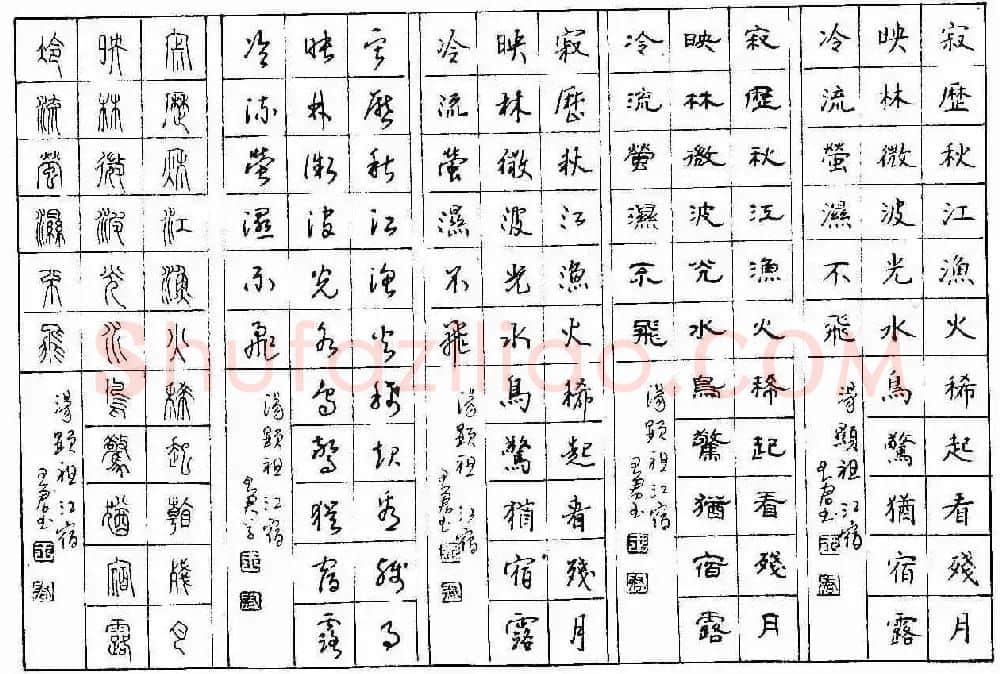 寂歷秋江漁火稀起看殘月
映林微波光水鳥驚猶宿露
冷流螢濕不飛
湯顯祖江宿
寂歷秋江漁火稀起看殘月
映林微波光水鳥驚猶宿露
冷流螢濕不飛
湯顯祖江宿
寂歷秋江漁火稀起看殘月
映林微波光水鳥驚猶宿露
冷流螢濕不飛
湯顯祖江宿
寂歷秋江漁火稀起看殘月
映林微波光水鳥驚猶宿露
冷流螢濕不飛
湯顯祖江宿
寂歷秋江漁火稀起看殘月
映林微波光水鳥驚猶宿露
冷流螢濕不飛
湯顯祖江宿
Shufaziliao.COM